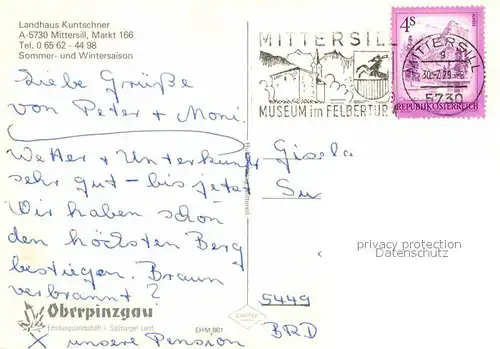 Landhaus Kuntschner
A-5730 Mittersill, Markt 166
Tel. 0 65 62 - 44 98
Sommer- und Wintersaison
Liebe Grüße
von Peter + Moni.
Wetter + Unterkunft
sehr gut - bis jetzt
Wir haben schon
den höchsten Berg
bestiegen. Braun
verbrannt ?
Oberpinzgau
Erholungslandschaft i. Salzburger Land
x unsere Pension
EHM 861
MITTERSILL
MUSEUM im FELBERTUR
4s
REPUBLIK ÖSTERREICH
MITTERSILL
5730
Gisela
Su
privacy protection
Datenschutz
5449
BRD